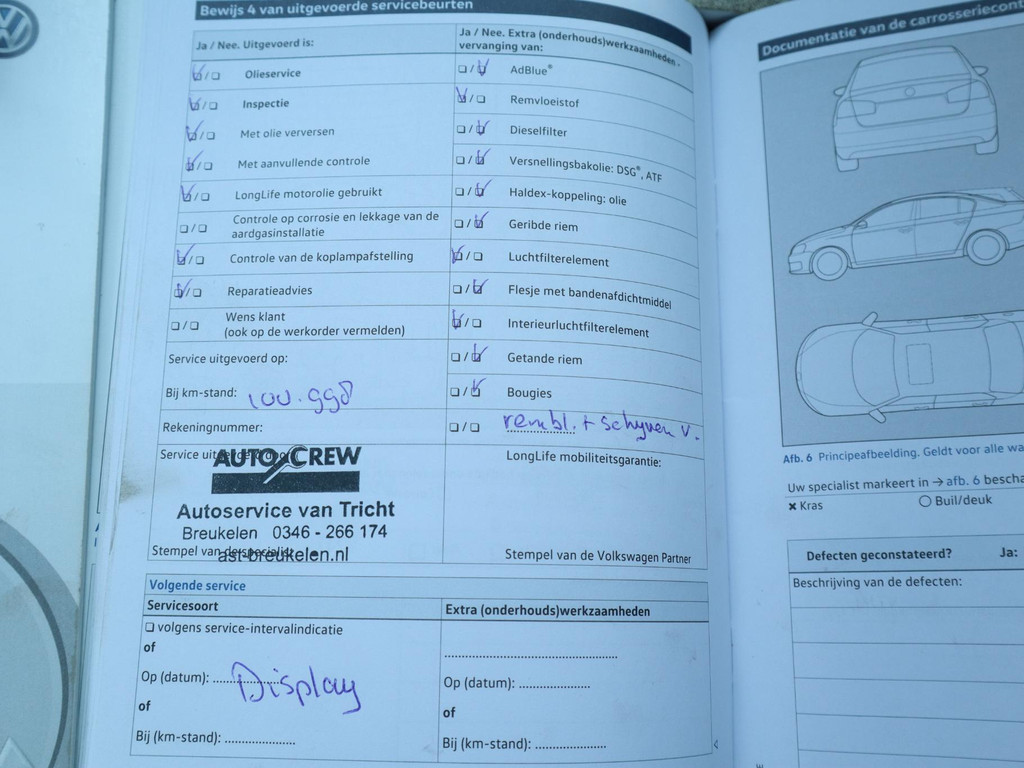 Bewijs 4 van uitgevoerde servicebeurten
Ja / Nee. Uitgevoerd is:
Olieservice
Inspectie
Met olie verversen
Met aanvullende controle
LongLife motorolie gebruikt
Controle op corrosie en lekkage van de
aardgasinstallatie
Controle van de koplampafstelling
Reparatieadvies
Wens klant
(ook op de werkorder vermelden)
Service uitgevoerd op:
Bij km-stand: 100.998
Rekeningnummer:
Service uitgevoerd door:
AUTO CREW
Autoservice van Tricht
Breukelen 0346 - 266 174
ast-breukelen.nl
Stempel van de specialist
Ja / Nee. Extra (onderhouds)werkzaamheden -
vervanging van:
AdBlue®
Remvloeistof
Dieselfilter
Versnellingsbakolie: DSG®, ATF
Haldex-koppeling: olie
Geribde riem
Luchtfilterelement
Flesje met bandenafdichtmiddel
Interieurluchtfilterelement
Getande riem
Bougies
rembl. + schyven v.
LongLife mobiliteitsgarantie:
Stempel van de Volkswagen Partner
Volgende service
Servicesoort
volgens service-intervalindicatie
of
Op (datum): Display
of
Bij (km-stand):
Extra (onderhouds)werkzaamheden
Op (datum):
of
Bij (km-stand):
Documentatie van de carrosseriecont
Afb. 6 Principeafbeelding. Geldt voor alle wa
Uw specialist markeert in → afb. 6 bescha
× Kras
Buil/deuk
Defecten geconstateerd? Ja:
Beschrijving van de defecten: